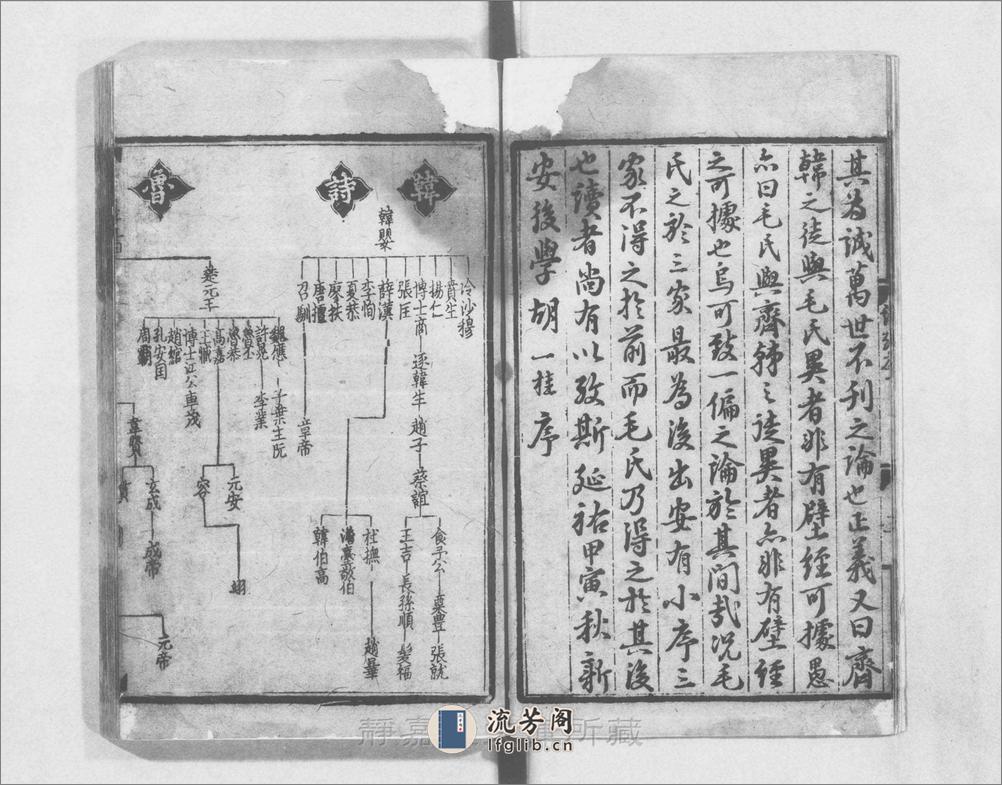 其為誠萬世不刊之論也正義又曰齊
韓之徒與毛氏異者非有壁經可據愚
亦曰毛氏與齊韓之徒異者亦非有壁經
之可據也烏可致一偏之論於其間哉況毛
氏之於三家最為後出安有小序三
家不得之於前而毛氏乃得之於其後
也讀者尚有以攷斯延祐甲寅秋新
安後學胡一桂序
韓
詩
韓嬰
冷沙穆
賁生
揚仁
博士商
逐韓生
趙子
蔡誼
食子公
粟豐
張就
王吉
長孫順
髮福
張匡
薛漢
杜撫
趙曄
澹臺敬伯
韓伯高
李恂
夏恭
廖扶
唐檀
召馴
章帝
魯
楚元王
魏應
千乘王阮
許晃
李業
魯丕
魯恭
高嘉
容
元安
詡
王臧
博士江公
車茂
趙綰
孔安國
周霸
韋賢
玄成
成帝
元帝
静嘉
所藏
流芳阁
lfglib.cn